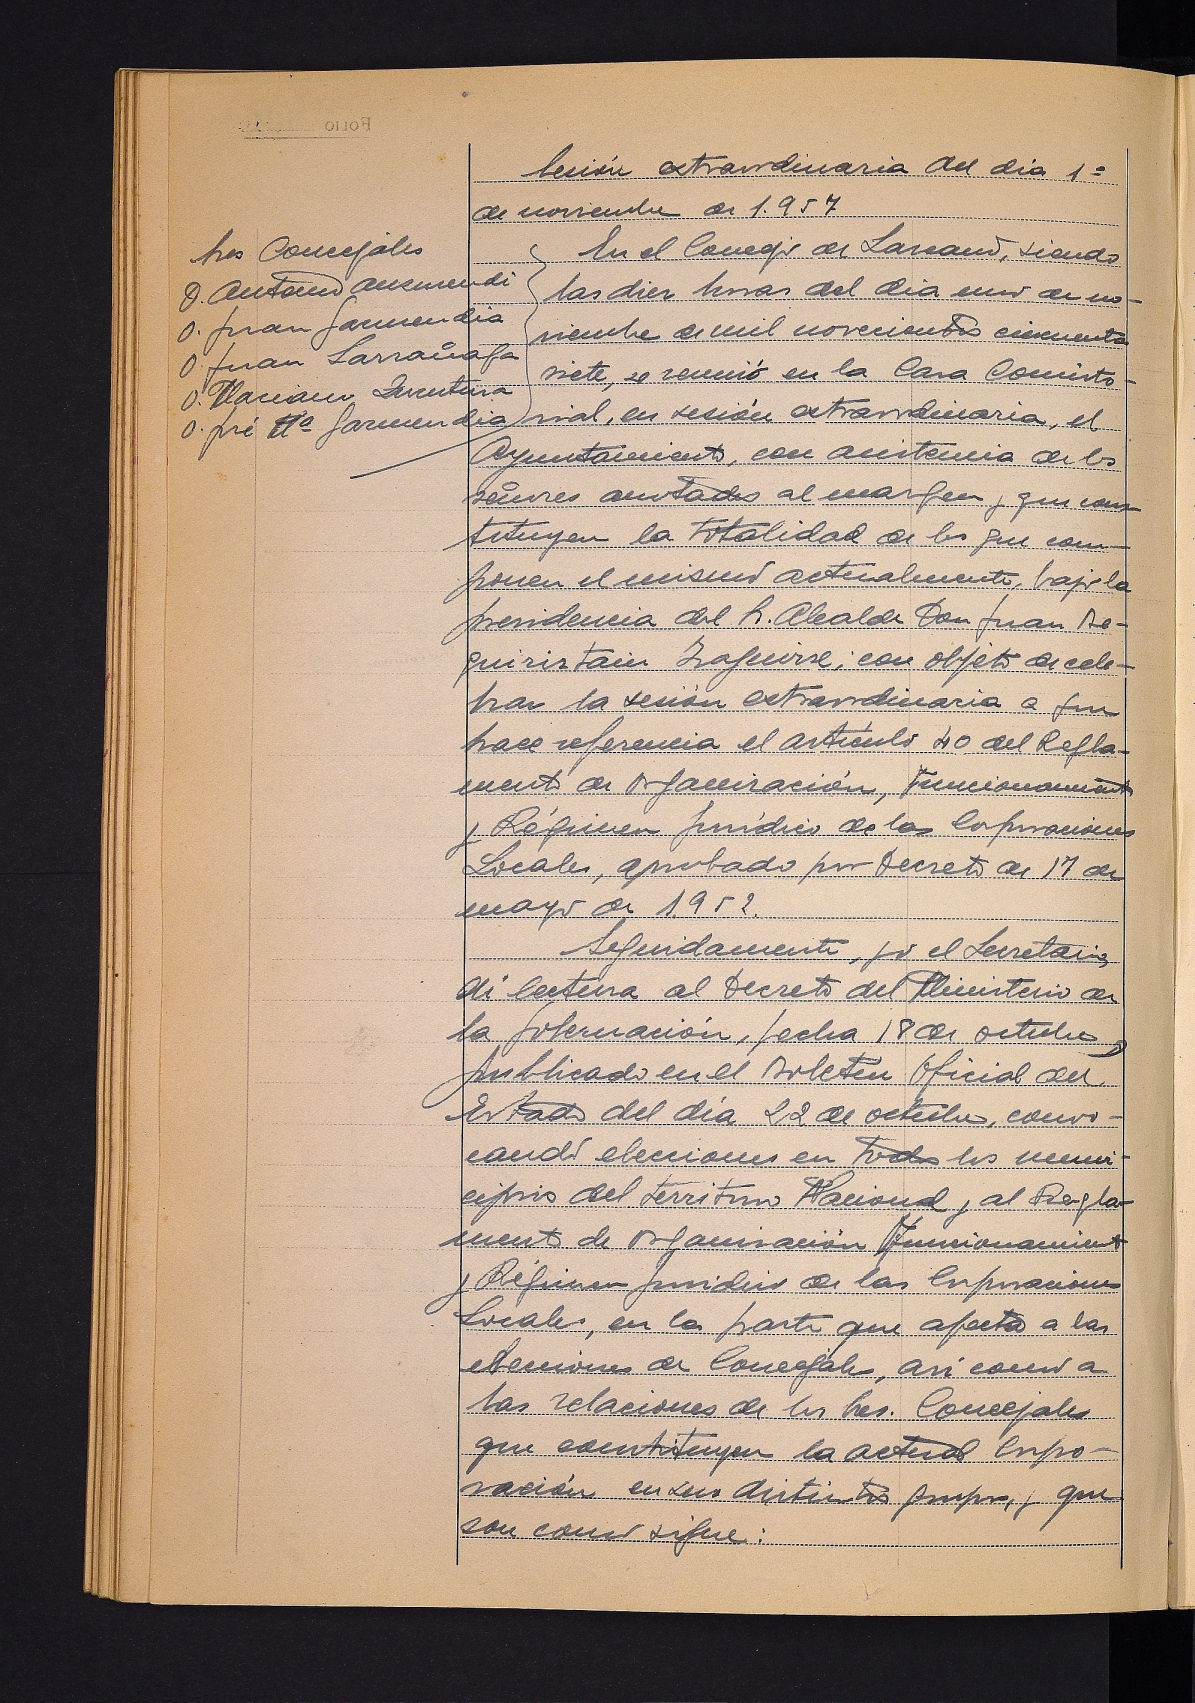 Sesión extraordinaria del día 1º
de noviembre de 1.957
Sres Concejales
D. Antonio Ausmendi
D. Juan Garmendia
D. Juan Larrañaga
D. Mariano Irurtuza
D. José Mª Garmendia
En el Concejo de Larraul, siendo
las diez horas del día uno de no-
viembre de mil novecientos cincuenta
siete, se reunió en la Casa Consisto-
rial, en sesión extraordinaria, el
Ayuntamiento, con asistencia de los
señores anotados al margen y que cons
tituyen la totalidad de los que com-
ponen el mismo actualmente, bajo la
presidencia del Sr. Alcalde Don Juan Re-
guiristain Izaguirre; con objeto de cele-
brar la sesión extraordinaria a que
hace referencia el artículo 40 del Regla-
mento de Organización, Funcionamiento
y Régimen Jurídico de las Corporaciones
Locales, aprobado por Decreto de 17 de
mayo de 1.952.
Seguidamente, yo el Secretario,
di lectura al Decreto del Ministerio de
la Gobernación, fecha 18 de octubre,
publicado en el Boletín Oficial del
Estado del día 22 de octubre, convo-
cando elecciones en todos los muni-
cipios del territorio Nacional y al Regla-
mento de Organización Funcionamiento
y Régimen Jurídico de las Corporaciones
Locales, en la parte que afecta a las
elecciones de Concejales, así como a
las relaciones de los Sres. Concejales
que constituyen la actual Corpo-
ración en sus distintos grupos, y que
son como sigue: